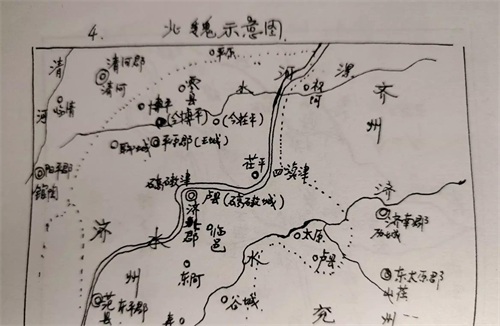 4. 北魏示意图
清河
清河郡
清河
临清
平原
零县
河
漯
水
祝阿
齐州
博平
(今博平)
(今茌平)
聊城
平原郡(王城)
茌平
四渎津
阳平郡
馆陶
碻磝津
卢县(碻磝城)
济北郡
临邑
济
济南郡
历城
济水
州
东阿
水
太原
卢县
东太原郡
山茌
范县
东平郡
谷城
兖
州